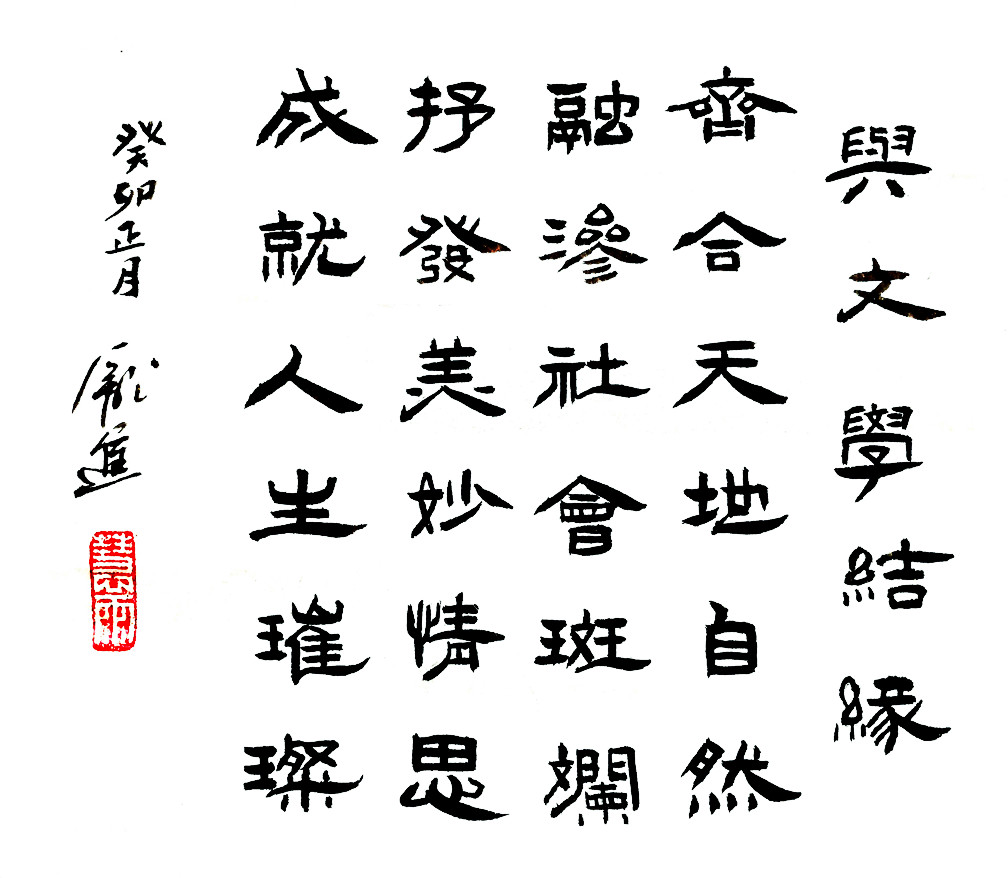 與文學結緣
齊合天地自然
融滲社會斑斕
抒發美妙情思
成就人生璀璨
癸卯正月 龐進